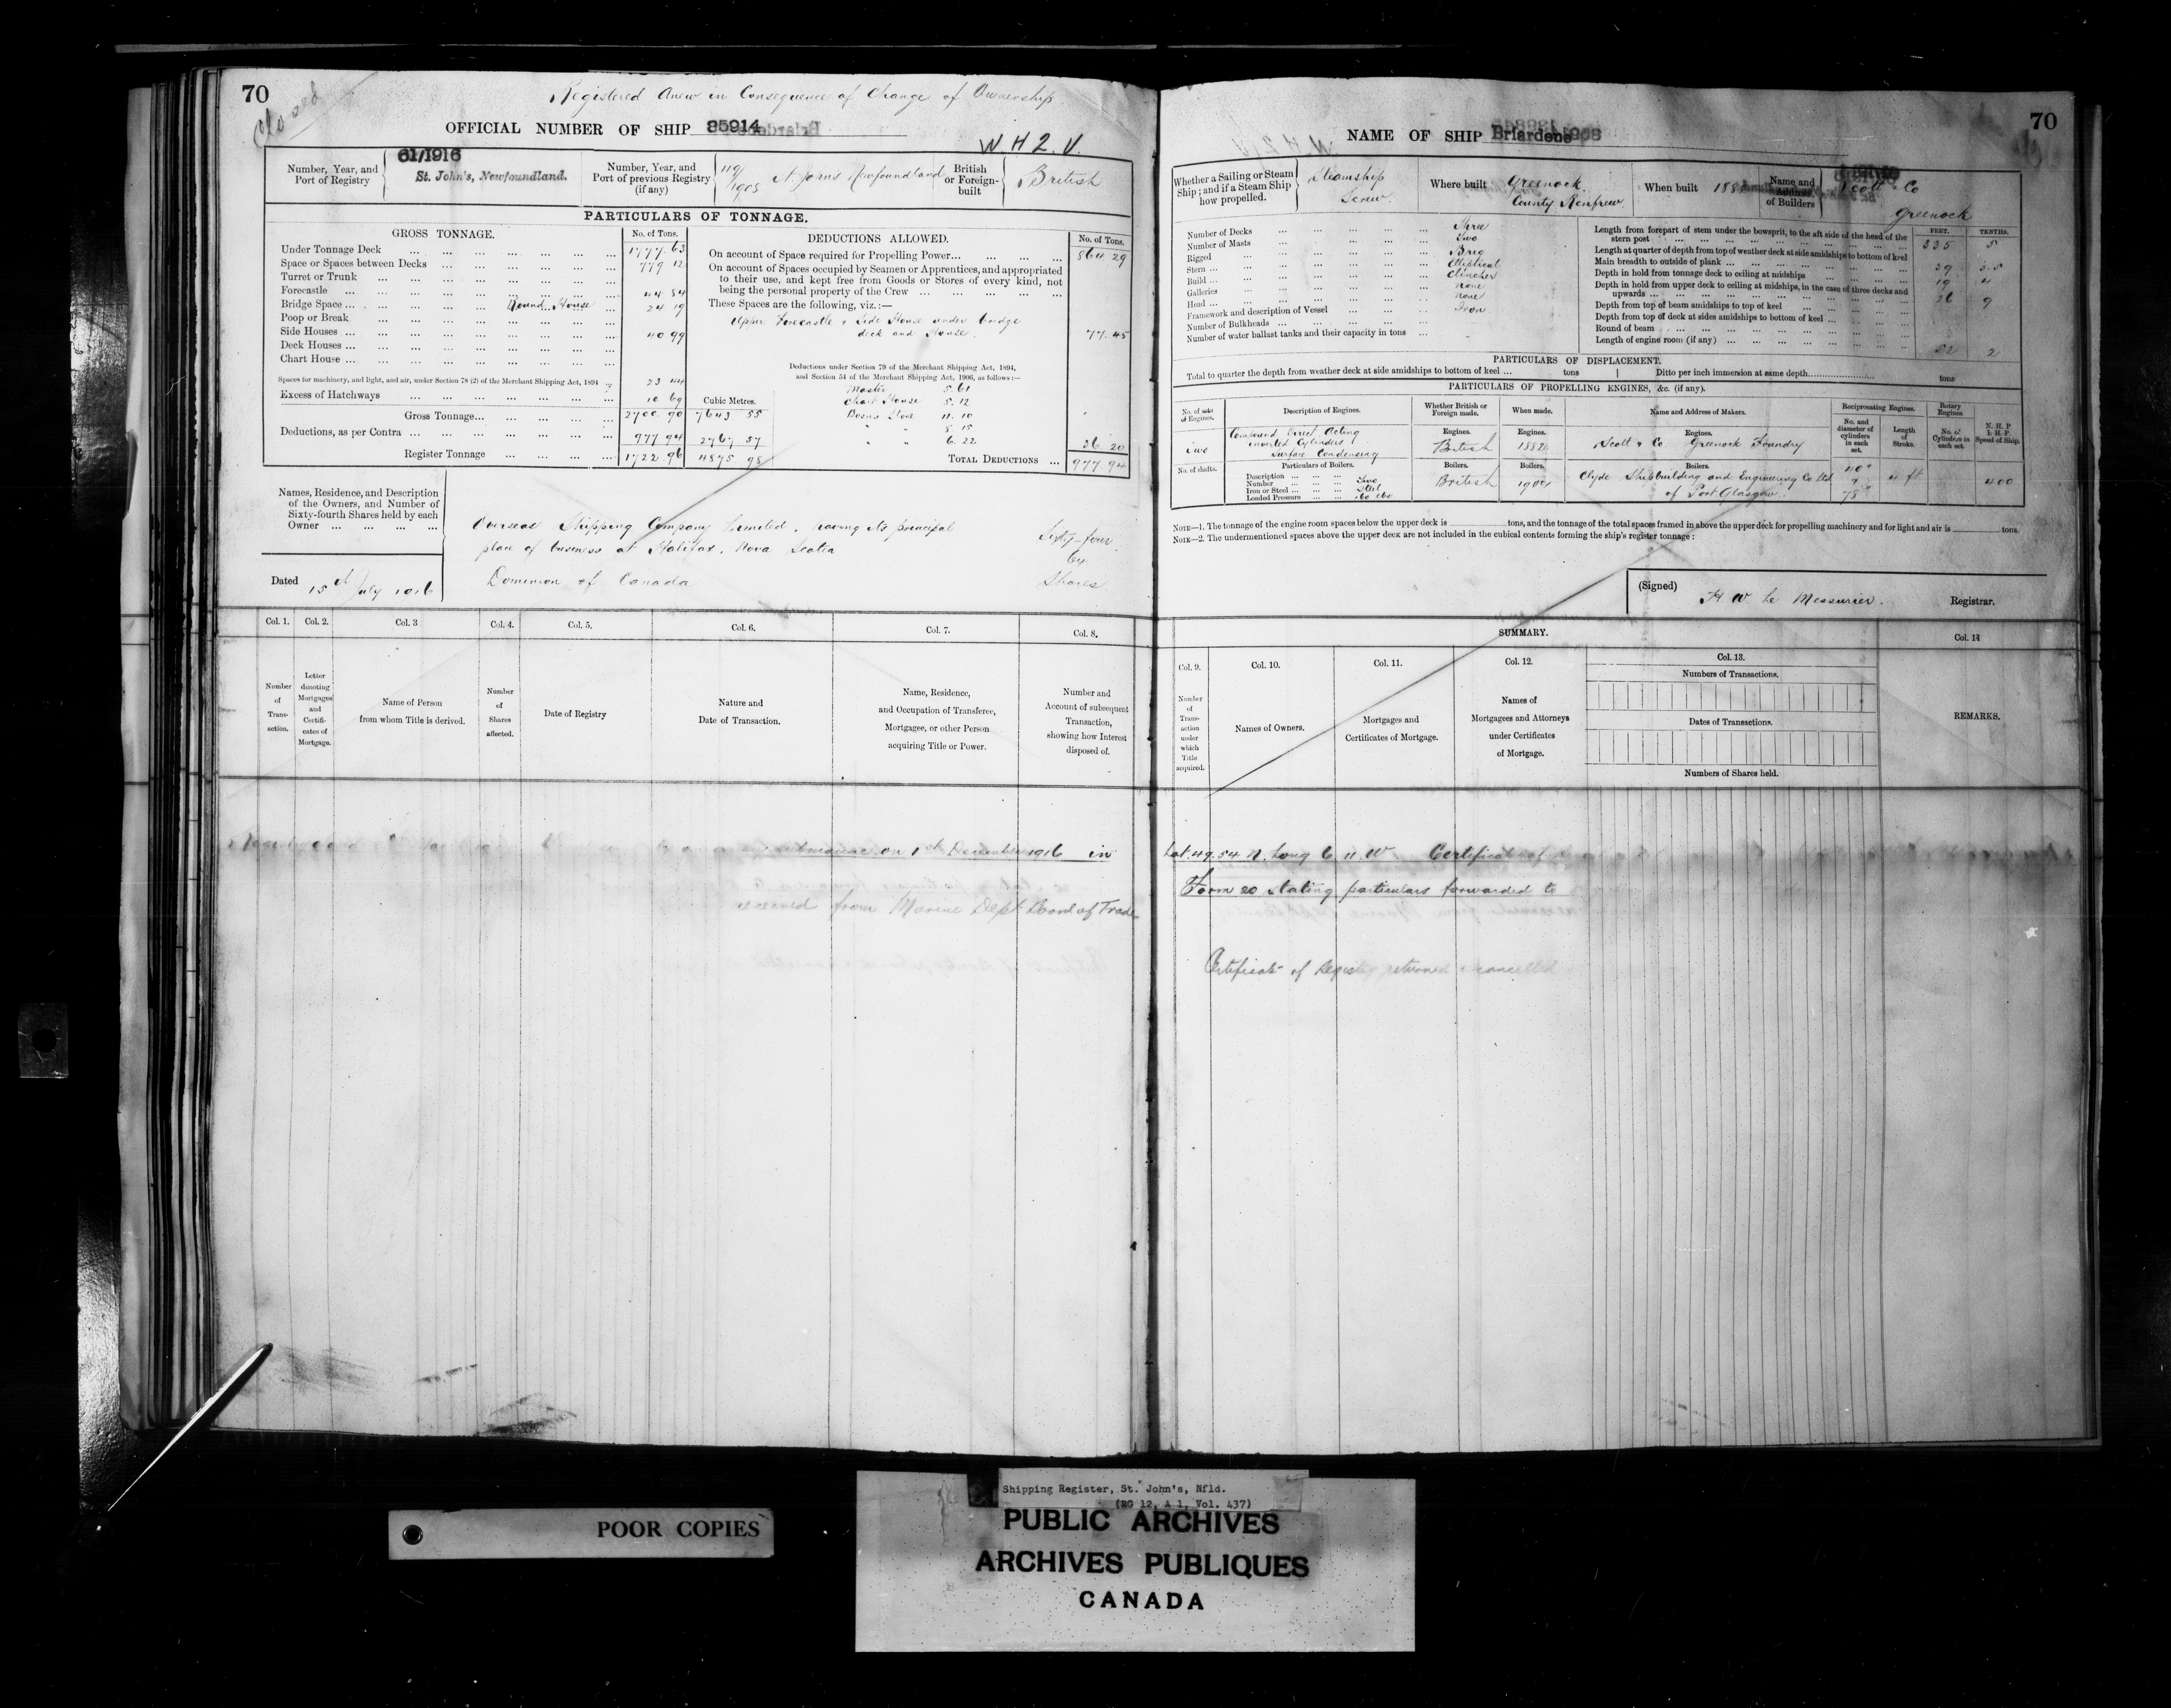 70
Closed
Registered Anew in Consequence of Change of Ownership
OFFICIAL NUMBER OF SHIP 85914
W. H. 2. V.
Number, Year, and Port of Registry
61/1916
St. John's, Newfoundland.
Number, Year, and Port of previous Registry (if any)
119/1905 St Johns Newfoundland
British or Foreign-built
British
PARTICULARS OF TONNAGE.
GROSS TONNAGE.
No. of Tons.
Under Tonnage Deck 1777.63
Space or Spaces between Decks 779 12
Turret or Trunk
Forecastle 44 84
Bridge Space Round House 24 19
Poop or Break
Side Houses 40 99
Deck Houses
Chart House
Spaces for machinery, and light, and air, under Section 78 (2) of the Merchant Shipping Act, 1894 23 44
Excess of Hatchways 10 69
Cubic Metres.
Gross Tonnage 2700.90 7643 55
Deductions, as per Contra 977 94 2767 57
Register Tonnage 1722.96 4875.98
DEDUCTIONS ALLOWED.
No. of Tons.
On account of Space required for Propelling Power 864 29
On account of Spaces occupied by Seamen or Apprentices, and appropriated to their use, and kept free from Goods or Stores of every kind, not being the personal property of the Crew
These Spaces are the following, viz.:—
Upper Forecastle & Side House under bridge
deck and House. 77.45
Deductions under Section 79 of the Merchant Shipping Act, 1894,
and Section 54 of the Merchant Shipping Act, 1906, as follows:—
Master 5.61
Chart House 5.12
Bosns Store 11.10
" " 8.15
" " 6.22
36 20
TOTAL DEDUCTIONS 977.94
Names, Residence, and Description of the Owners, and Number of Sixty-fourth Shares held by each Owner
Overseas Shipping Company Limited, having its principal
place of business at Halifax, Nova Scotia
Dominion of Canada
Sixty-four
64
Shares
Dated 15th July 1916
Col. 1.
Col. 2.
Col. 3
Col. 4.
Col. 5.
Col. 6.
Col. 7.
Col. 8.
Number of Transaction.
Letter denoting Mortgages and Certificates of Mortgage.
Name of Person from whom Title is derived.
Number of Shares affected.
Date of Registry
Nature and Date of Transaction.
Name, Residence, and Occupation of Transferee, Mortgagee, or other Person acquiring Title or Power.
Number and Account of subsequent Transaction, showing how Interest disposed of.
submarine on 1st December 1916 in
received from Marine Dept Board of Trade
70
NAME OF SHIP Briardene
Whether a Sailing or Steam Ship; and if a Steam Ship how propelled.
Steamship
Screw.
Where built
Greenock.
County Renfrew
When built 1882
Name and Address of Builders
Scott & Co
Greenock
Number of Decks Three
Number of Masts Two
Rigged Brig
Stern Elliptical
Build Clincher
Galleries none
Head none
Framework and description of Vessel Iron
Number of Bulkheads
Number of water ballast tanks and their capacity in tons
FEET. TENTHS.
Length from forepart of stem under the bowsprit, to the aft side of the head of the stern post 335 5
Length at quarter of depth from top of weather deck at side amidships to bottom of keel
Main breadth to outside of plank 39 35
Depth in hold from tonnage deck to ceiling at midships 19 4
Depth in hold from upper deck to ceiling at midships, in the case of three decks and upwards 26 9
Depth from top of beam amidships to top of keel
Depth from top of deck at sides amidships to bottom of keel
Round of beam
Length of engine room (if any) 52 2
PARTICULARS OF DISPLACEMENT.
Total to quarter the depth from weather deck at side amidships to bottom of keel ... tons
Ditto per inch immersion at same depth tons
PARTICULARS OF PROPELLING ENGINES, &c. (if any).
No. of sets of Engines.
Description of Engines.
Whether British or Foreign made.
When made.
Name and Address of Makers.
Reciprocating Engines.
No. and diameter of cylinders in each set.
Length of Stroke.
Rotary Engines
No. of Cylinders in each set.
N. H. P
I. H. P.
Speed of Ship.
Two
Compound Direct Acting
inverted Cylinders
Surface Condensing
Engines.
British
Engines.
1882
Engines.
Scott & Co Greenock Foundry
No. of shafts.
Particulars of Boilers.
Description
Number Two
Iron or Steel Steel
Loaded Pressure
Boilers.
British
Boilers.
1904
Boilers.
Clyde Shipbuilding and Engineering Co Ltd
of Port Glasgow.
40"
75"
4 ft
400
NOTE—1. The tonnage of the engine room spaces below the upper deck is tons, and the tonnage of the total spaces framed in above the upper deck for propelling machinery and for light and air is tons.
NOTE—2. The undermentioned spaces above the upper deck are not included in the cubical contents forming the ship's register tonnage:
(Signed) H W Le Messurier. Registrar.
SUMMARY.
Col. 9.
Col. 10.
Col. 11.
Col. 12.
Col. 13.
Col. 14
Number of Transaction under which Title acquired.
Names of Owners.
Mortgages and Certificates of Mortgage.
Names of Mortgagees and Attorneys under Certificates of Mortgage.
Numbers of Transactions.
Dates of Transactions.
Numbers of Shares held.
REMARKS.
Lat. 49.54 N. Long 6 11 W Certificate of
Form 20 stating particulars forwarded to
Certificate of Registry returned & cancelled
Shipping Register, St. John's, Nfld.
(RG 12, A 1, Vol. 437)
POOR COPIES
PUBLIC ARCHIVES
ARCHIVES PUBLIQUES
CANADA